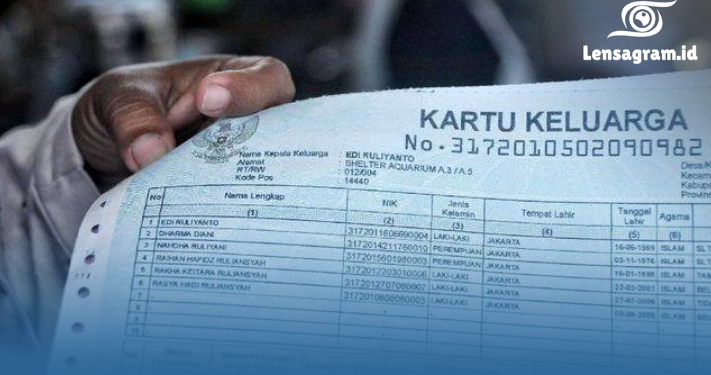 Lensagram.id
KARTU KELUARGA
No. 3172010502090982
Nama Kepala Keluarga : EDI RULIYANTO
Alamat : SHELTER AQUARIUM A.3 / A.5
RT/RW : 012/004
Kode Pos : 14440
Desa/K
Kecam
Kabup
Provin
No Nama Lengkap NIK Jenis Kelamin Tempat Lahir Tanggal Lahir Agama
(1) (2) (3) (4) (5) (6)
1 EDI RULIYANTO 3172011606690004 LAKI-LAKI JAKARTA 16-06-1969 ISLAM
2 DHARMA DIANI 3172014211760010 PEREMPUAN JAKARTA ISLAM
3 NAHDHA RULIYANI 3172015601980003 PEREMPUAN JAKARTA ISLAM
4 RAIHAN HAFIDZ RULIANSYAH 3172012203010006 LAKI-LAKI JAKARTA ISLAM
5 RAKHA KEITARA RULIANSYAH 3172012707060007 LAKI-LAKI JAKARTA ISLAM
6 RASYA HADI RULIANSYAH 3172010808080003 LAKI-LAKI JAKARTA ISLAM
7